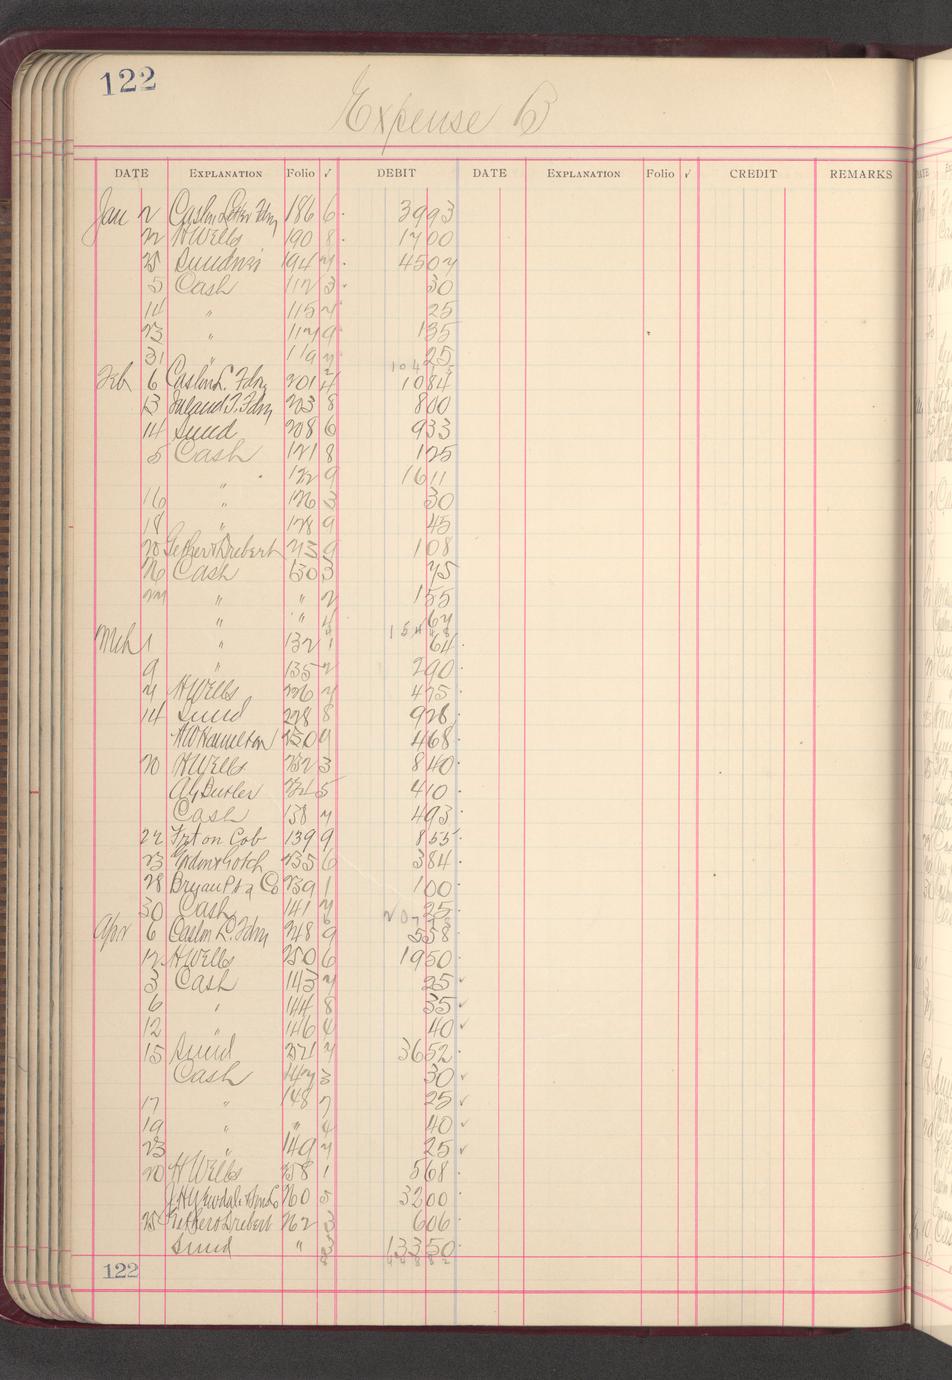 122
Expense B
DATE EXPLANATION Folio ✓ DEBIT DATE EXPLANATION Folio ✓ CREDIT REMARKS
Jan 2 Caslon Letter Fdry 186 6 3993
22 H Wells 190 8 1700
25 Sundries 194 7 4507
5 Cash 112 3 30
14 " 115 7 25
23 " 117 9 135
31 " 119 7 25
Feb 6 Caslon L. Fdry 201 4 1084
13 Inland T. Fdry 203 8 800
14 Sund 208 6 933
5 Cash 121 8 125
" 122 9 1611
16 " 126 3 30
18 " 128 9 45
20 Gether & Drebert 213 9 108
26 Cash 130 3 75
27 " " 2 155
" " 4 67
Mch 1 " 132 1 64
9 " 135 2 290
7 H Wells 226 7 475
14 Sund 228 8 928
HW Hamilton 230 7 468
20 H Wells 232 3 840
AG Butler 234 5 410
Cash 138 7 493
22 Frt on Gob 139 9 855
23 235 6 384
28 Bryan Pt g Co 239 1 100
30 Cash 141 7 25
Apr 6 Caslon L. Fdry 248 9 558
12 H Wells 250 6 1950
3 Cash 143 7 25 ✓
6 " 144 8 35 ✓
12 " 146 6 40 ✓
15 Sund 271 7 3652
Cash 147 3 30 ✓
17 " 148 7 25 ✓
19 " " 4 40 ✓
23 " 149 7 25 ✓
20 H Wells 258 1 568
260 5 3200
25 Gether & Drebert 262 3 606
Sund " 3 13350
122